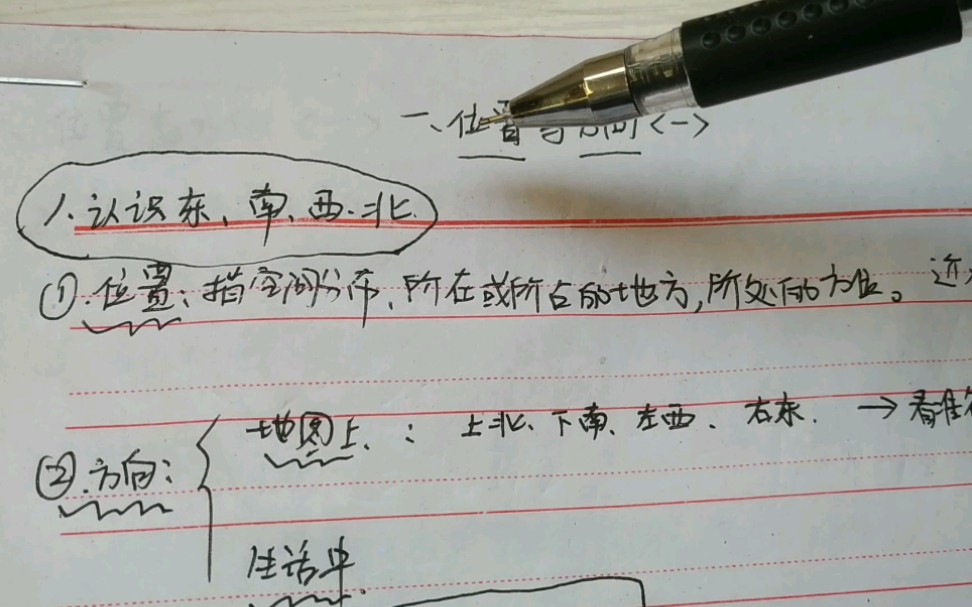 一、位置与方向<一>
1.认识东、南、西、北.
①.位置:指空间分布,所在或所占的地方,所处的方位。 近
地图上.: 上北、下南、左西、右东. → 看准
②.方向:
生活中.